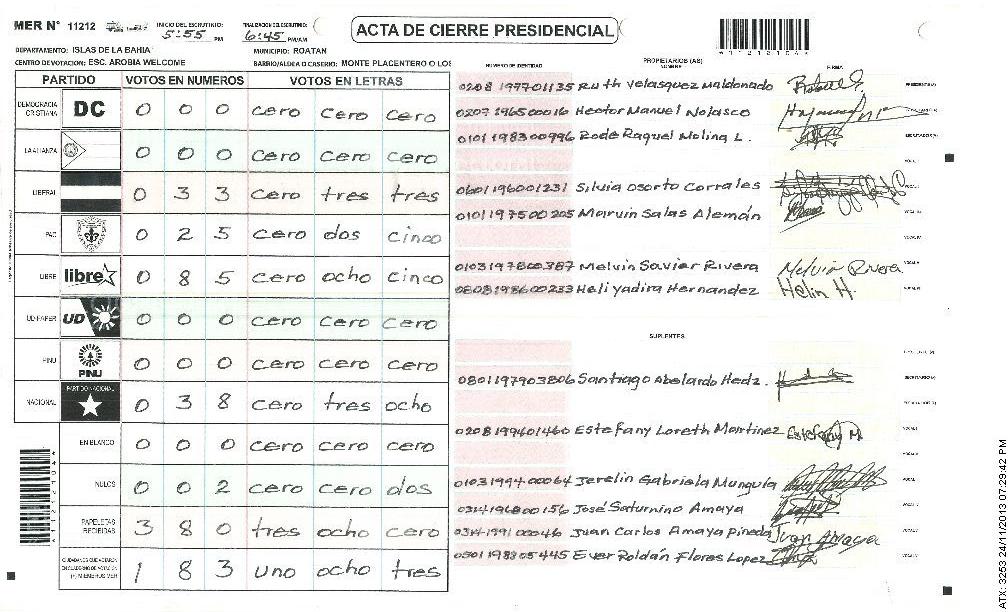 MER N° 11212
INICIO DEL ESCRUTINIO:
5:55 PM
FINALIZACION DEL ESCRUTINIO:
6:45 PM/AM
ACTA DE CIERRE PRESIDENCIAL
A11212104A
DEPARTAMENTO: ISLAS DE LA BAHIA
MUNICIPIO: ROATAN
CENTRO DE VOTACION: ESC. AROBIA WELCOME
BARRIO/ALDEA O CASERIO: MONTE PLACENTERO O LOS
PARTIDO VOTOS EN NUMEROS VOTOS EN LETRAS
DEMOCRACIA CRISTIANA DC 0 0 0 cero cero cero
LA ALIANZA 0 0 0 cero cero cero
LIBERAL 0 3 3 cero tres tres
PAC 0 2 5 cero dos cinco
LIBRE libre 0 8 5 cero ocho cinco
UD FAPER UD 0 0 0 cero cero cero
PINU PINU 0 0 0 cero cero cero
NACIONAL PARTIDO NACIONAL 0 3 8 cero tres ocho
EN BLANCO 0 0 0 cero cero cero
NULOS 0 0 2 cero cero dos
PAPELETAS RECIBIDAS 3 8 0 tres ocho cero
CIUDADANOS QUE VOTARON
EN CUADERNO DE VOTACION
(+) MIEMBROS MER 1 8 3 uno ocho tres
NUMERO DE IDENTIDAD PROPIETARIOS (AS) NOMBRE FIRMA
0208 197701135 Ruth Velasquez Maldonado
0207 196500016 Hector Manuel Nolasco
0101 198300996 Rode Raquel Molina L.
0601196001231 Silvia Osorto Corrales
0101197500205 Marvin Salas Alemán
0103197800387 Melvin Savier Rivera Melvin Rivera
0808198600233 Heli yadira Hernandez Helin H.
SUPLENTES
0801197903806 Santiago Abelardo Hedz.
0208199401460 Estefany Loreth Martinez Estefany M.
0103199400064 Jerelin Gabriela Mungula
0314196800156 José Saturnino Amaya
0314199100046 Juan Carlos Amaya Pineda Juan Amaya
0501198305445 Ever Roldán Flores Lopez
A11212104A
ATX: 3253 24/11/2013 07:29:42 PM